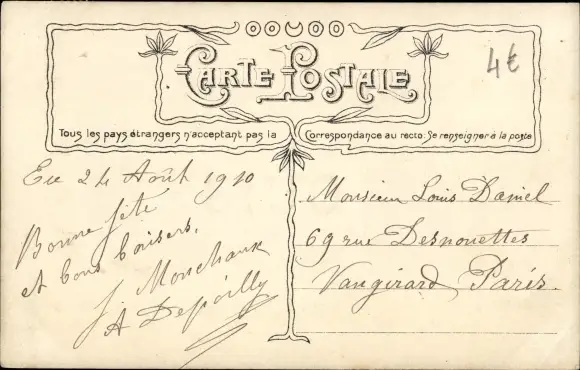 CARTE POSTALE
4€
Tous les pays étrangers n'acceptant pas la Correspondance au recto: Se renseigner à la poste
Eu 24 Août 1910
Bonne fête
et bons baisers,
J. Monchaux
A Depoilly
Monsieur Louis Daniel
69 rue Desnouettes
Vaugirard Paris.